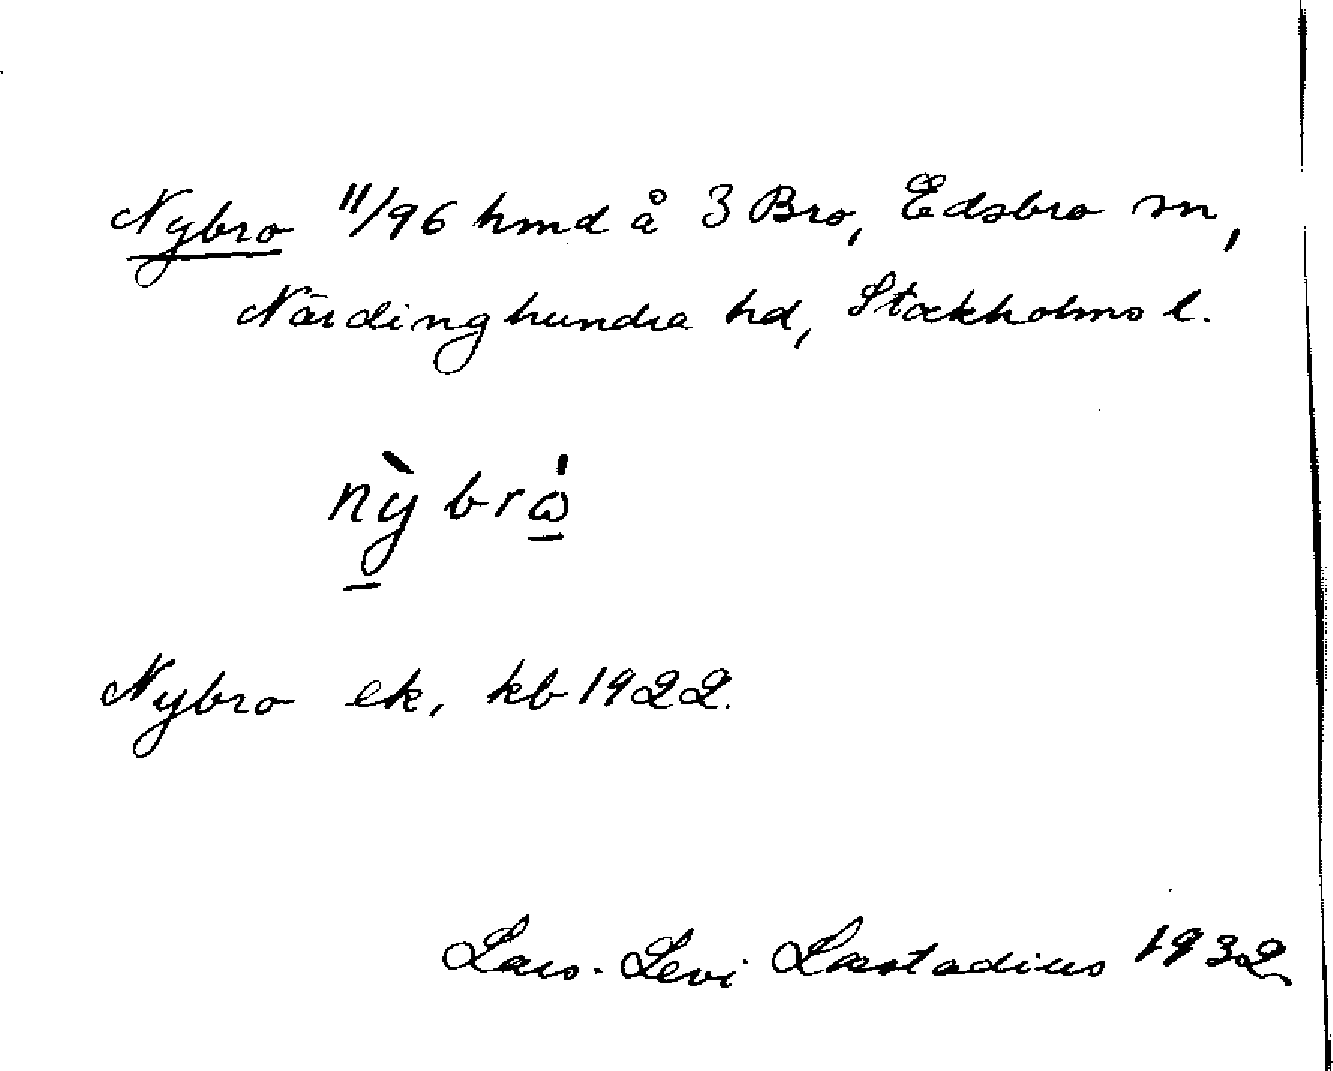 Nybro 11/96 hmd å 3 Bro, Edsbro sn,
Närdinghundra hd, Stockholms l.
nỳ brω̇
Nybro ek, kb 1922.
Lars-Levi Læstadius 1932